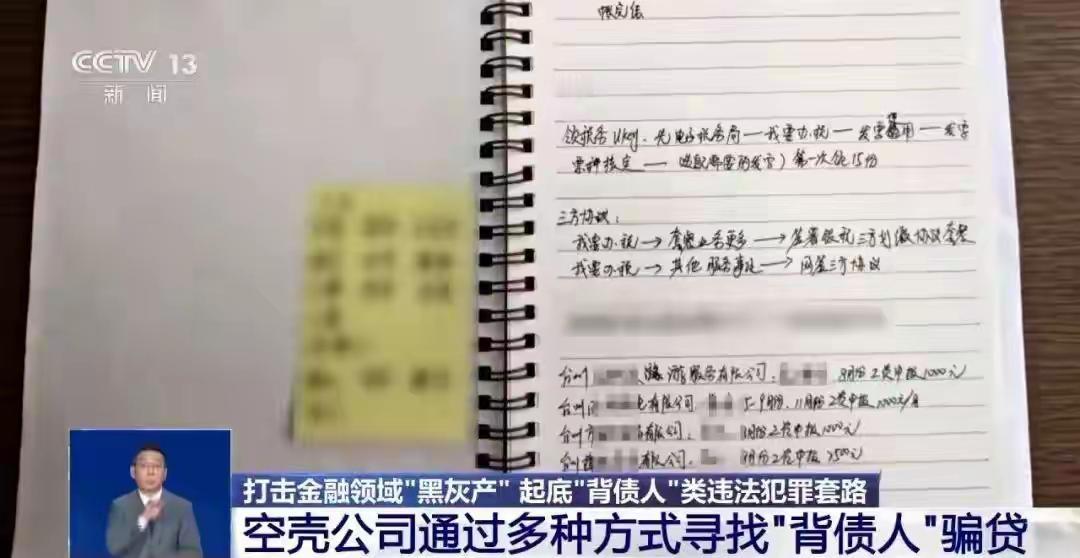 CCTV 13
新闻
领税务Ukey. 先电子税务局—我要办税—发票使用—发票
票种核定— 选取需要的发票) 第一次领15份
三方协议:
我要办税→套餐业务更多→签署银税三方划缴协议套餐
我要办税→其他服务事项→网签三方协议
台州 旅游服务有限公司. 8月份工资申报1000元
台州 有限公司. 5-9月份. 11月份工资申报1000元/月
台州 有限公司. 月份工资申报1000元
台州 有限公司. 月份工资申报7500元
打击金融领域"黑灰产" 起底"背债人"类违法犯罪套路
空壳公司通过多种方式寻找"背债人"骗贷